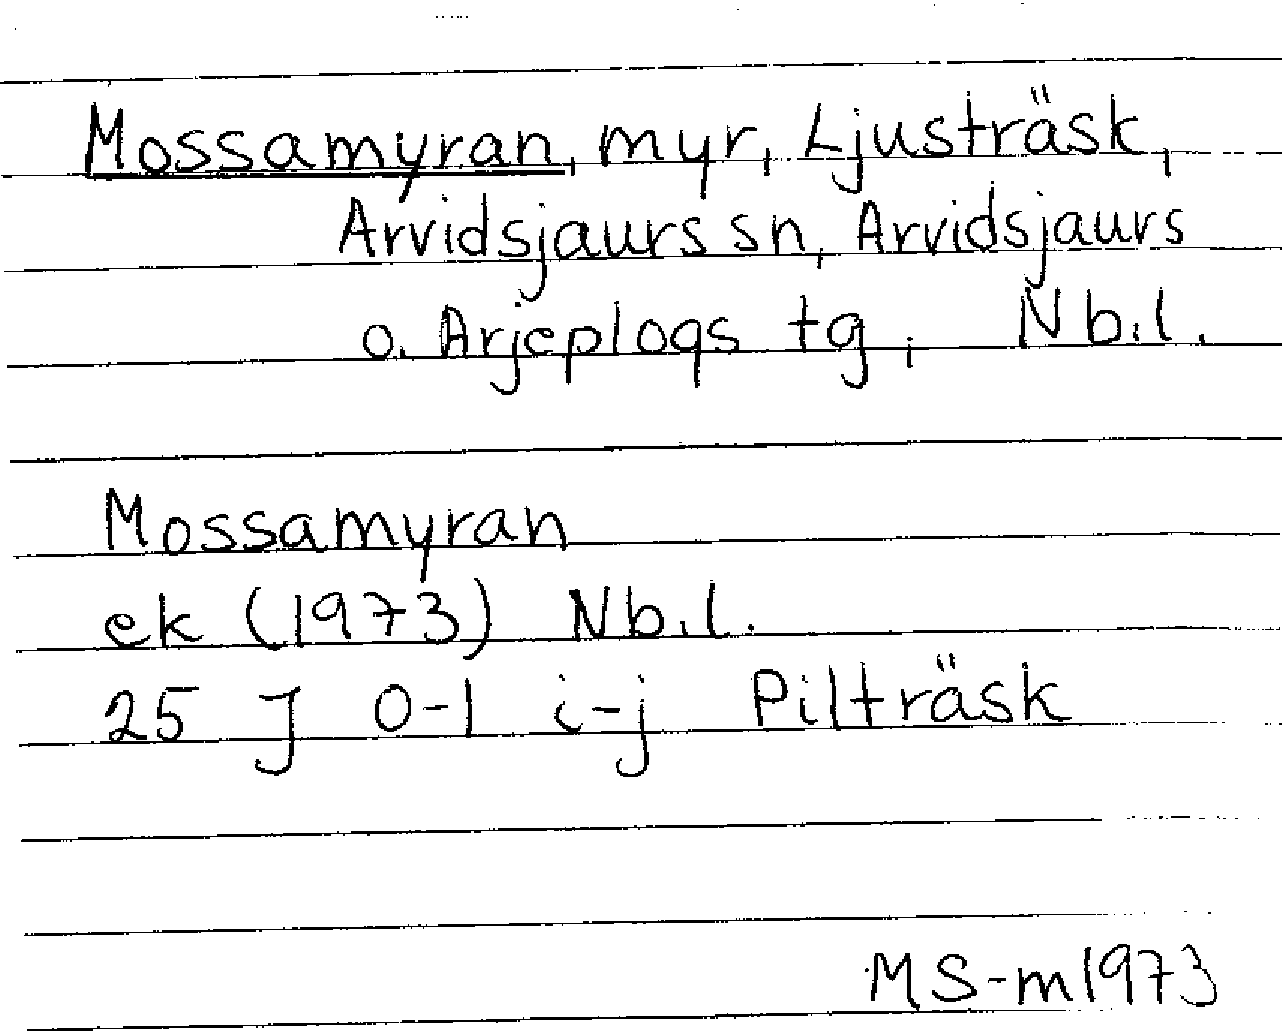 Mossamyran, myr, Ljusträsk,
Arvidsjaurs sn, Arvidsjaurs
o. Arjeplogs tg, Nb.l.
Mossamyran
ek (1973) Nb.l.
25 J 0-1 i-j Pilträsk
MS-m1973